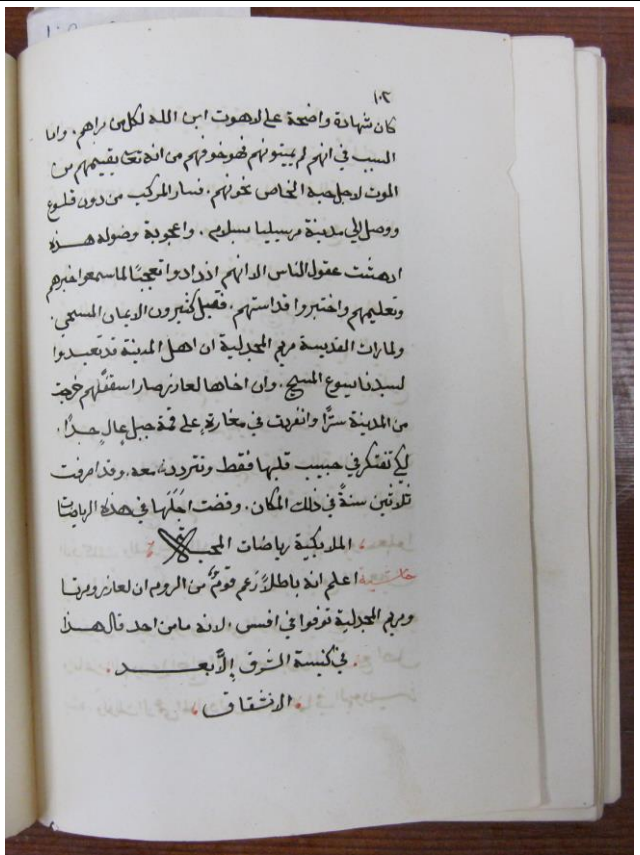 ١٠٢
كان شهادة واضحة على لاهوت ابن الله لكل من براهم. واما
السبب في انهم لم يميتونهم فهو خوفهم من انه تعا يقيمهم من
الموت لاجل حبه الخاص نحوهم. فسار المركب من دون قلوع
ووصل الي مدينة مرسيليا بسلام. واعجوبة وصوله هذه
ادهشت عقول الناس الا انهم ازدادوا تعجبًا لما سمعوا خبرهم
وتعليمهم واختبروا قداستهم. فقبل كثيرون الايمان المسيحي.
ولما رات القديسة مريم المجدلية ان اهل المدينة قد تعبدوا
لسيدنا يسوع المسيح. وان اخاها لعازر صار اسقفًا لهم خرجت
من المدينة سترًا وانفردت في مغارةٍ على قمة جبل عالٍ جدًا.
لكي تفتكر في حبيب قلبها فقط وتتردد معه. وقد صرفت
ثلاثين سنةً في ذلك المكان. وقضت اجلها في هذه الرياضات
الملايكية رياضات المحبة
حاشية اعلم انه باطلاً زعم قومٌ من الروم ان لعازر ومرتا
ومريم المجدلية توفوا في افسس. لانه ما من احد قال هذا
في كنيسة الشرق إلّا بعد
الانشقاق.